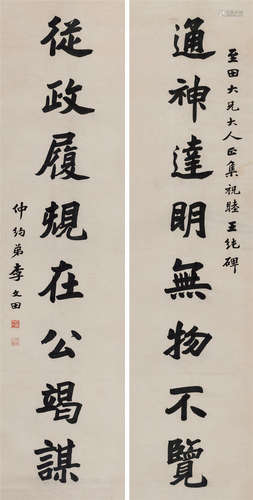 至田大兄大人正集祝睦王純碑
通神達明無物不覽
從政履規在公竭謀
仲約弟李文田